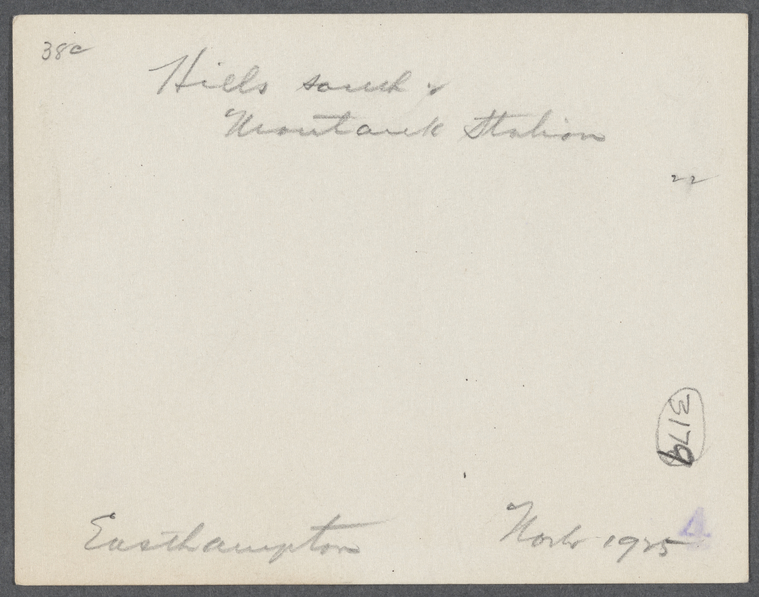 38c
Hills south of
Montauk Station
22
3179
Easthampton
1925
4